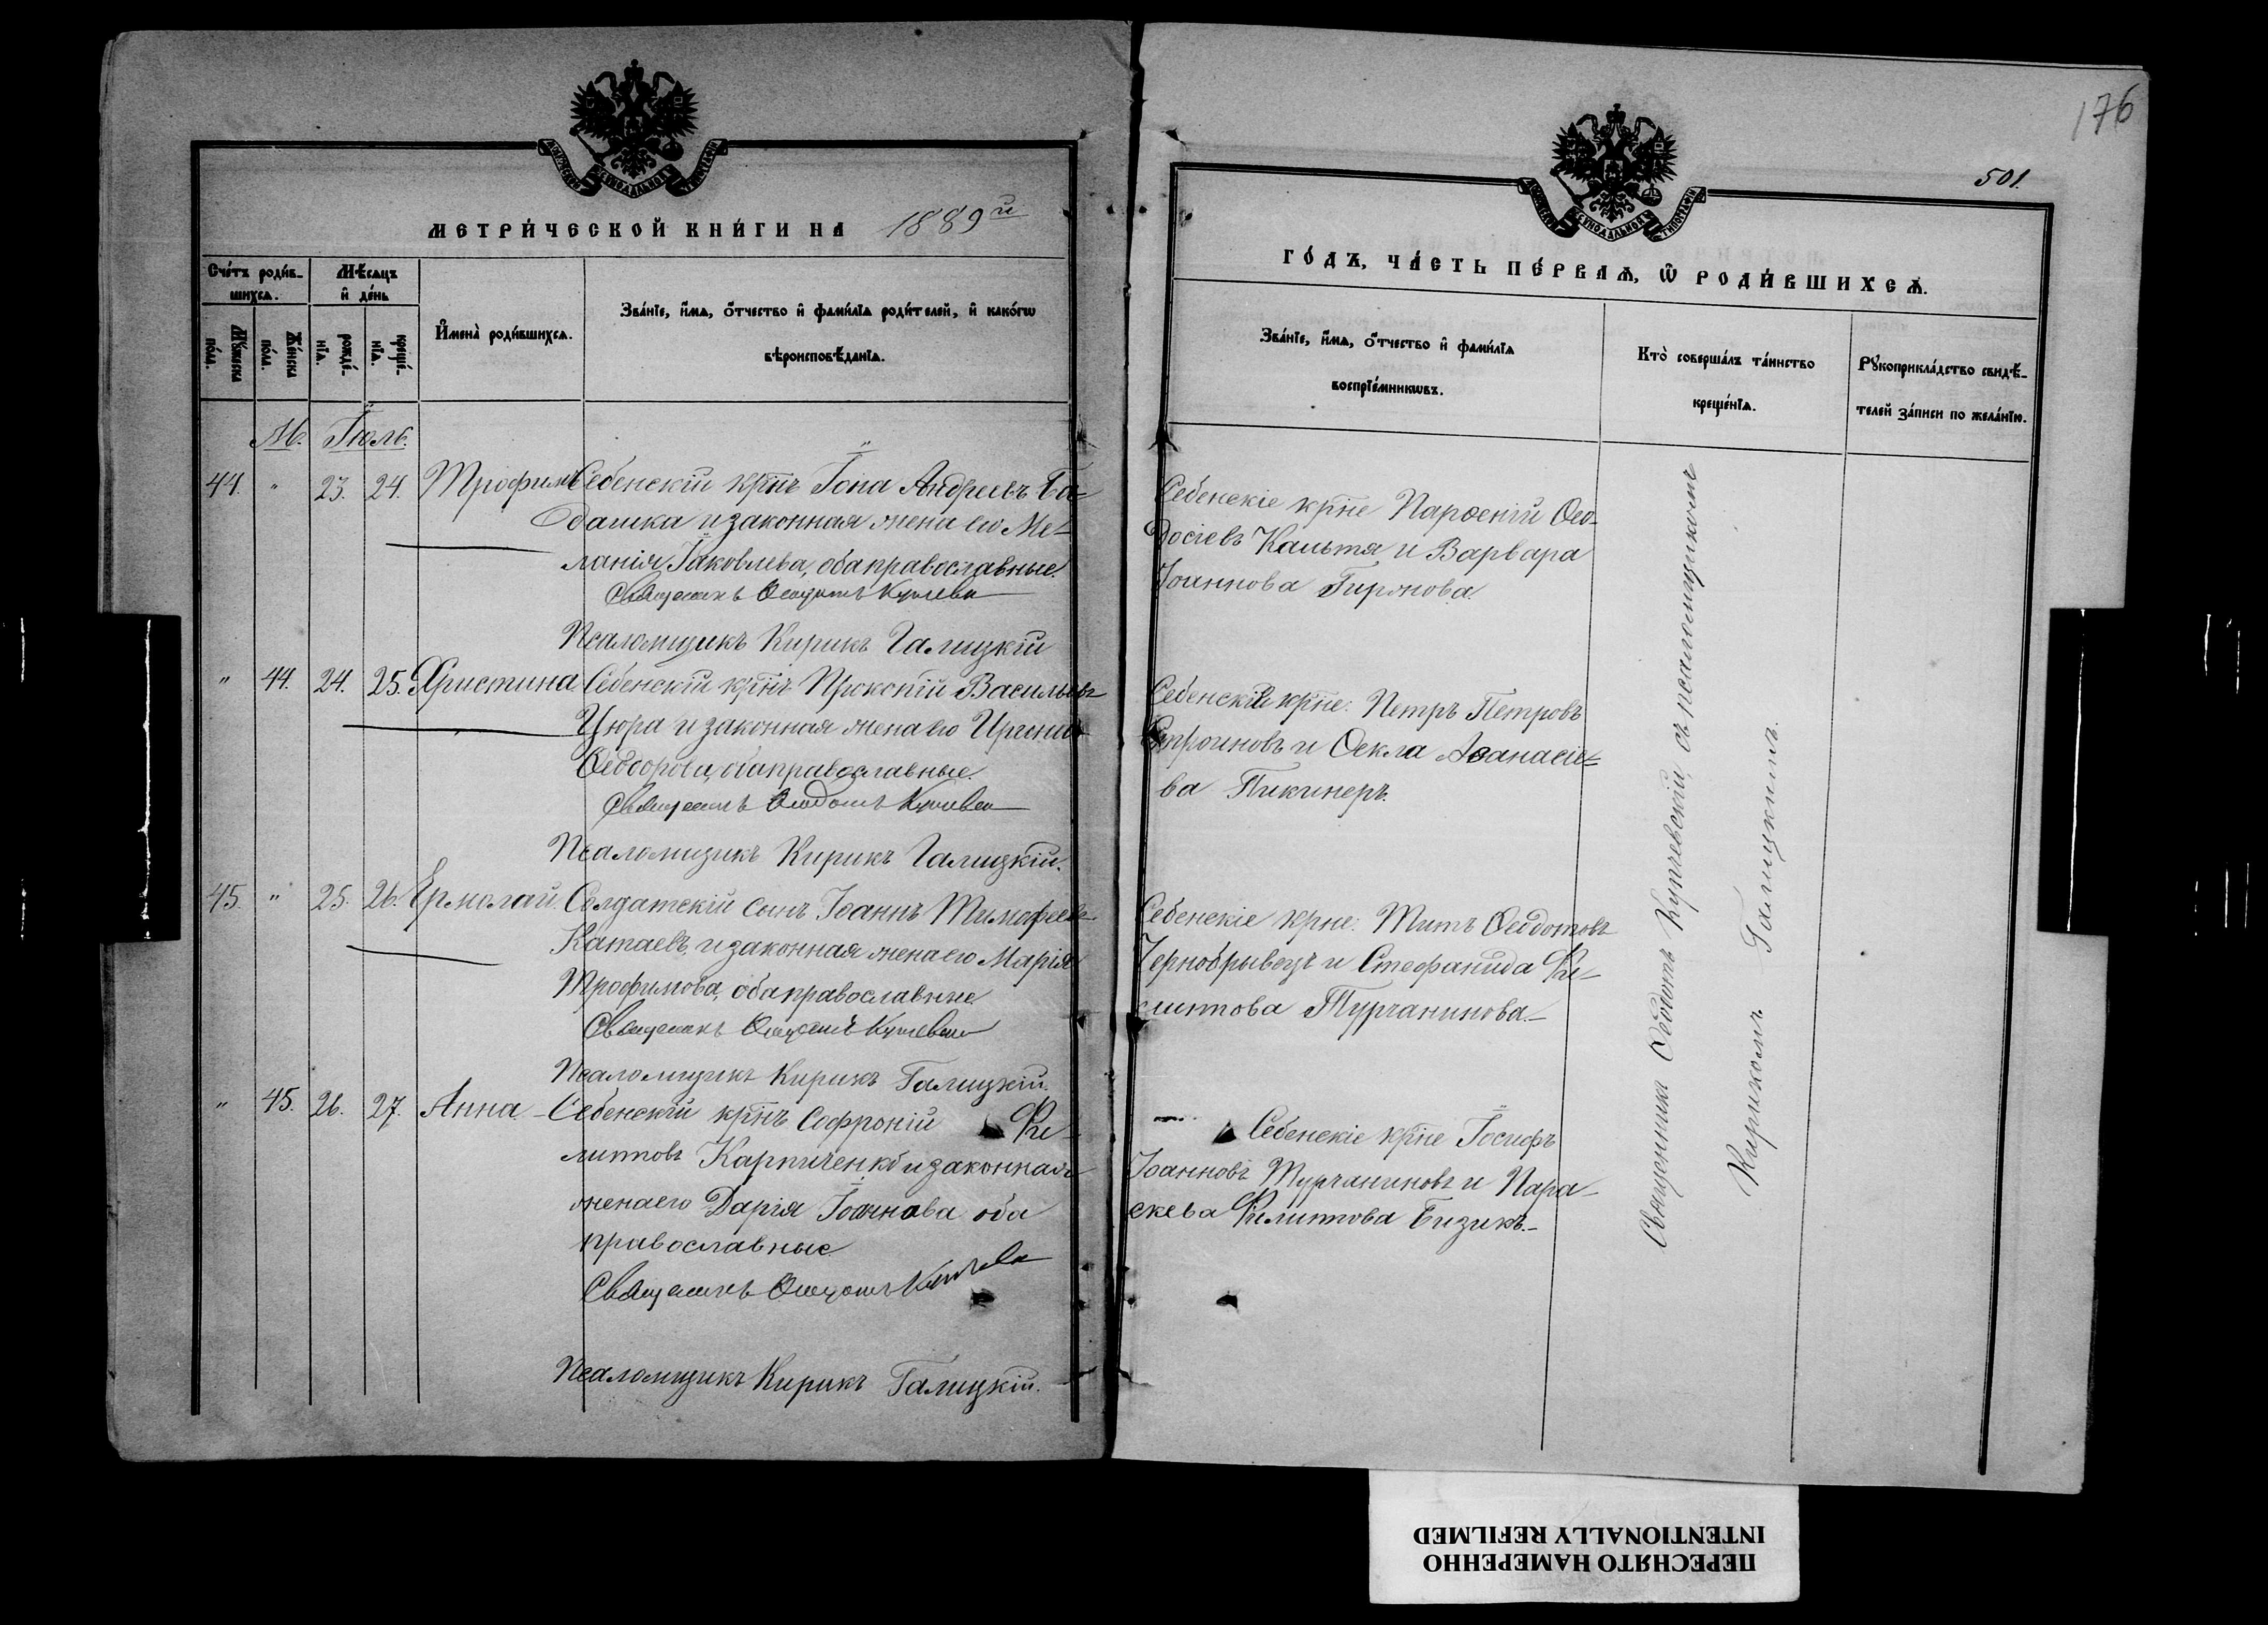 МЕТРИ́ЧЕСКОЙ КНИ́ГИ НА 1889й
Сче́тъ роди́в-
шихсѧ.
Мѣ́сѧцъ
и҆ де́нь
Мꙋ́жеска
по́ла.
Же́нска
по́ла.
рожде́-
нїѧ.
креще́-
нїѧ.
И҆мена̀ роди́вшихсѧ.
Зва́нїе, и҆́мѧ, ѻ҆́тчество и҆ фами́лїѧ роди́телей, и҆ како́гѡ
вѣроисповѣ́данїѧ.
М. Іюль.
44. " 23. 24. Трофимъ Себенскій крнъ Іона Андреевъ Ба-
дашка и законная жена его Ме-
ланія Іаковлева, оба православные.
Священникъ Ѳеодотъ
Псаломщикъ Кирикъ Галицкій
" 44. 24. 25. Христина Себенскій крнъ Прокопій Васильевъ
Цюра и законная жена его Ирина
Ѳеодорова, оба православные.
Священникъ Ѳеодотъ
Псаломщикъ Кирикъ Галицкій.
45. " 25. 26. Ермолай. Солдатскій сынъ Іоаннъ Тимофеевъ
Катаевъ, и законная жена его Марія
Трофимова, оба православные
Священникъ Ѳеодотъ
Псаломщикъ Кирикъ Галицкій.
" 45. 26. 27. Анна Себенскій крнъ Софроній Фи-
липповъ Карпиченко и законная
жена его Дарія Іоаннова оба
православные
Священникъ Ѳеодотъ
Псаломщикъ Кирикъ Галицкій.
176
501.
ГО́ДЪ, ЧА́СТЬ ПЕ́РВАѦ, Ѽ РОДИ́ВШИХСѦ.
Зва́нїе, и҆́мѧ, ѻ҆́тчество и҆ фами́лїѧ
воспрїе́мникѡвъ.
Кто̀ соверша́лъ та́инство
креще́нїѧ.
Рꙋкоприкла́дство свидѣ́-
телей за́писи по жела́нїю.
Себенскіе крне Парѳеній Ѳео-
досіевъ Капьтя и Варвара
Іоаннова Гиронова.
Себенскіе крне: Петръ Петровъ
и Ѳекла Аѳанасіе-
ва Пикинеръ.
Себенскіе крне: Титъ Ѳеодотовъ
Чернобривецъ и Стефанида Фи-
липпова Турчанинова.
Себенскіе крне Іосифъ
Іоанновъ Турчаниновъ и Пара-
скева Филиппова Бизикъ.
Священникъ Ѳеодотъ Купчевскій, съ псаломщикомъ
Кирикомъ Галицкимъ.
ПЕРЕСНЯТО НАМЕРЕННО
INTENTIONALLY REFILMED